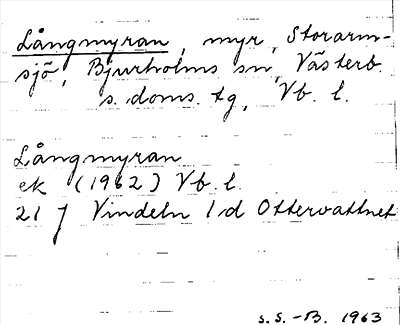 Långmyran, myr, Storarm-
sjö, Bjurholms sn, Västerb.
s. doms. tg, Vb. l.
Långmyran
ek (1962) Vb. l.
21 J Vindeln 1d Ottervattnet
S.S.-B. 1963